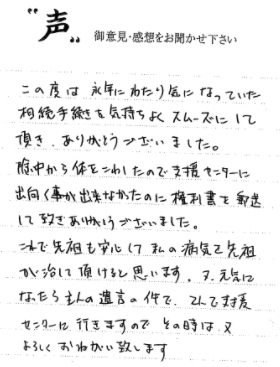 "声" 御意見・感想をお聞かせ下さい
この度は 永年にわたり気になっていた
相続手続を気持ちよくスムーズにして
頂き、ありがとうございました。
途中から体をこわしたので支援センターに
出向く事が出来なかたのに権利書を郵送
して頂きありがとうございました。
これで先祖も安心して私の病気も先祖
が治して頂けると思います。又、元気に
なったら主人の遺言の件で、
センターに行きますので その時は 又
よろしくおねがい致します